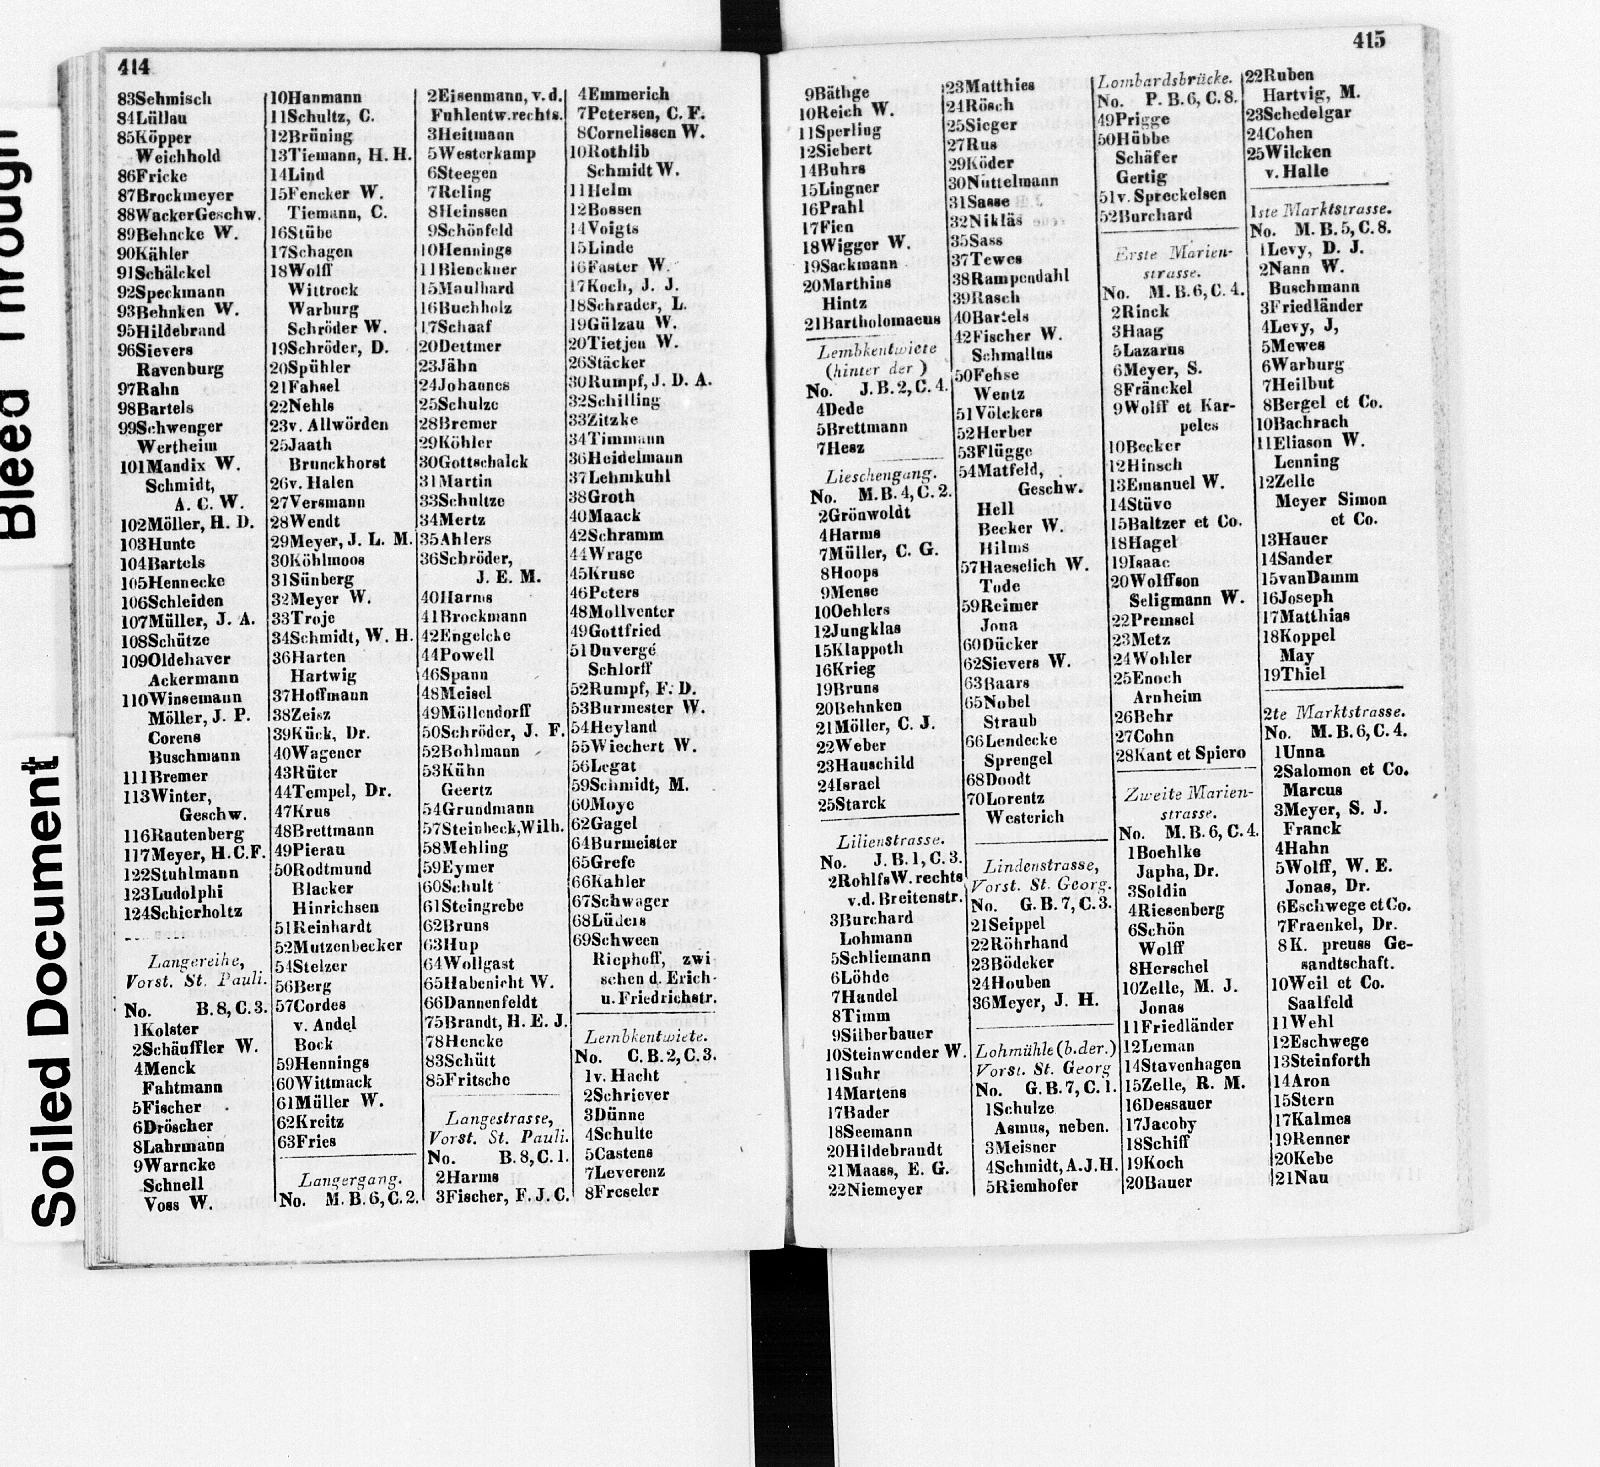 414
83Sehmisch
84Lüllau
85Köpper
Weichhold
86Fricke
87Brockmeyer
88WackerGeschw.
89Behncke W.
90Kähler
91Schälckel
92Speckmann
93Behnken W.
95Hildebrand
96Sievers
Ravenburg
97Rahn
98Bartels
99Schwenger
Wertheim
101Mandix W.
Schmidt,
A. C. W.
102Möller, H. D.
103Hunte
104Bartels
105Hennecke
106Schleiden
107Müller, J. A.
108Schütze
109Oldehaver
Ackermann
110Winsemann
Möller, J. P.
Corens
Buschmann
111Bremer
113Winter,
Geschw.
116Rautenberg
117Meyer, H.C.F.
122Stuhlmann
123Ludolphi
124Schierholtz
Langereihe,
Vorst. St. Pauli.
No. B. 8, C. 3.
1Kolster
2Schäuffler W.
4Menck
Fahtmann
5Fischer
6Dröscher
8Lahrmann
9Warncke
Schnell
Voss W.
10Hanmann
11Schultz, C.
12Brüning
13Tiemann, H. H.
14Lind
15Fencker W.
Tiemann, C.
16Stübe
17Schagen
18Wolff
Wittrock
Warburg
Schröder W.
19Schröder, D.
20Spühler
21Fahsel
22Nehls
23v. Allwörden
25Jaath
Brunckhorst
26v. Halen
27Versmann
28Wendt
29Meyer, J. L. M.
30Köhlmoos
31Sünberg
32Meyer W.
33Troje
34Schmidt, W. H.
36Harten
Hartwig
37Hoffmann
38Zeisz
39Kück, Dr.
40Wagener
43Rüter
44Tempel, Dr.
47Krus
48Brettmann
49Pierau
50Rodtmund
Blacker
Hinrichsen
51Reinhardt
52Mutzenbecker
54Stelzer
56Berg
57Cordes
v. Andel
Bock
59Hennings
60Wittmack
61Müller W.
62Kreitz
63Fries
Langergang.
No. M. B. 6, C. 2.
2Eisenmann, v. d.
Fuhlentw.rechts.
3Heitmann
5Westerkamp
6Steegen
7Reling
8Heinssen
9Schönfeld
10Hennings
11Blenckner
15Maulhard
16Buchholz
17Schaaf
20Dettmer
23Jähn
24Johannes
25Schulze
28Bremer
29Köhler
30Gottschalck
31Martin
33Schultze
34Mertz
35Ahlers
36Schröder,
J. E. M.
40Harms
41Brockmann
42Engelcke
44Powell
46Spann
48Meisel
49Möllendorff
50Schröder, J. F.
52Bohlmann
53Kühn
Geertz
54Grundmann
57Steinbeck,Wilh.
58Mehling
59Eymer
60Schult
61Steingrebe
62Bruns
63Hup
64Wollgast
65Habenicht W.
66Dannenfeldt
75Brandt, H. E. J.
78Hencke
83Schütt
85Fritsche
Langestrasse,
Vorst. St. Pauli.
No. B. 8, C. 1.
2Harms
3Fischer, F. J. C.
4Emmerich
7Petersen, C. F.
8Cornelissen W.
10Rothlib
Schmidt W.
11Helm
12Bossen
14Voigts
15Linde
16Faster W.
17Koch, J. J.
18Schrader, L.
19Gülzau W.
20Tietjen W.
26Stäcker
30Rumpf, J. D. A.
32Schilling
33Zitzke
34Timmann
36Heidelmann
37Lehmkuhl
38Groth
40Maack
42Schramm
44Wrage
45Kruse
46Peters
48Mollventer
49Gottfried
51Duvergé
Schlorff
52Rumpf, F. D.
53Burmester W.
54Heyland
55Wiechert W.
56Legat
59Schmidt, M.
60Moye
62Gagel
64Burmeister
65Grefe
66Kahler
67Schwager
68Lüders
69Schween
Riephoff, zwi
schen d. Erich-
u. Friedrichstr.
Lembkentwiete.
No. C. B. 2, C. 3.
1v. Hacht
2Schriever
3Dünne
4Schulte
5Castens
7Leverenz
8Freseler
415
9Bäthge
10Reich W.
11Sperling
12Siebert
14Buhrs
15Lingner
16Prahl
17Fien
18Wigger W.
19Sackmann
20Marthins
Hintz
21Bartholomaeus
Lembkentwiete
(hinter der )
No. J. B. 2, C. 4.
4Dede
5Brettmann
7Hesz
Lieschengang.
No. M. B. 4, C. 2.
2Grönwoldt
4Harms
7Müller, C. G.
8Hoops
9Mense
10Oehlers
12Jungklas
15Klappoth
16Krieg
19Bruns
20Behnken
21Möller, C. J.
22Weber
23Hauschild
24Israel
25Starck
Lilienstrasse.
No. J. B. 1, C. 3.
2RohlfsW. rechts
v.d. Breitenstr.
3Burchard
Lohmann
5Schliemann
6Löhde
7Handel
8Timm
9Silberbauer
10Steinwender W.
11Suhr
14Martens
17Bader
18Seemann
20Hildebrandt
21Maass, E. G.
22Niemeyer
23Matthies
24Rösch
25Sieger
27Rus
29Köder
30Nüttelmann
31Sasse
32Nikläs
35Sass
37Tewes
38Rampendahl
39Rasch
40Bartels
42Fischer W.
Schmallus
50Fehse
Wentz
51Völckers
52Herber
53Flügge
54Matfeld,
Geschw.
Hell
Becker W.
Hilms
57Haeselich W.
Tode
59Reimer
Jona
60Dücker
62Sievers W.
63Baars
65Nobel
Straub
66Lendecke
Sprengel
68Doodt
70Lorentz
Westerich
Lindenstrasse,
Vorst. St. Georg.
No. G. B. 7, C. 3.
21Seippel
22Röhrhand
23Bödeker
24Houben
36Meyer, J. H.
Lohmühle (b. der.)
Vorst. St. Georg
No. G. B. 7, C. 1.
1Schulze
Asmus, neben.
3Meisner
4Schmidt, A.J.H.
5Riemhofer
Lombardsbrücke.
No. P. B. 6, C. 8.
49Prigge
50Hübbe
Schäfer
Gertig
51v. Spreckelsen
52Burchard
Erste Marien-
strasse.
No. M. B. 6, C. 4.
2Rinck
3Haag
5Lazarus
6Meyer, S.
8Fränckel
9Wolff et Kar-
peles
10Becker
12Hinsch
13Emanuel W.
14Stüve
15Baltzer et Co.
18Hagel
19Isaac
20Wolffson
Seligmann W.
22Premsel
23Metz
24Wohler
25Enoch
Arnheim
26Behr
27Cohn
28Kant et Spiero
Zweite Marien-
strasse.
No. M. B. 6, C. 4.
1Boehlke
Japha, Dr.
3Soldin
4Riesenberg
6Schön
Wolff
8Herschel
10Zelle, M. J.
Jonas
11Friedländer
12Leman
14Stavenhagen
15Zelle, R. M.
16Dessauer
17Jacoby
18Schiff
19Koch
20Bauer
22Ruben
Hartvig, M.
23Schedelgar
24Cohen
25Wilcken
v. Halle
1ste Marktstrasse.
No. M. B. 5, C. 8.
1Levy, D. J.
2Nann W.
Buschmann
3Friedländer
4Levy, J,
5Mewes
6Warburg
7Heilbut
8Bergel et Co.
10Bachrach
11Eliason W.
Lenning
12Zelle
Meyer Simon
et Co.
13Hauer
14Sander
15vanDamm
16Joseph
17Matthias
18Koppel
May
19Thiel
2te Marktstrasse.
No. M. B. 6, C. 4.
1Unna
2Salomon et Co.
Marcus
3Meyer, S. J.
Franck
4Hahn
5Wolff, W. E.
Jonas, Dr.
6Eschwege et Co.
7Fraenkel, Dr.
8K. preuss Ge-
sandtschaft.
10Weil et Co.
Saalfeld
11Wehl
12Eschwege
13Steinforth
14Aron
15Stern
17Kalmes
19Renner
20Kebe
21Nau
Bleed Through
Soiled Document